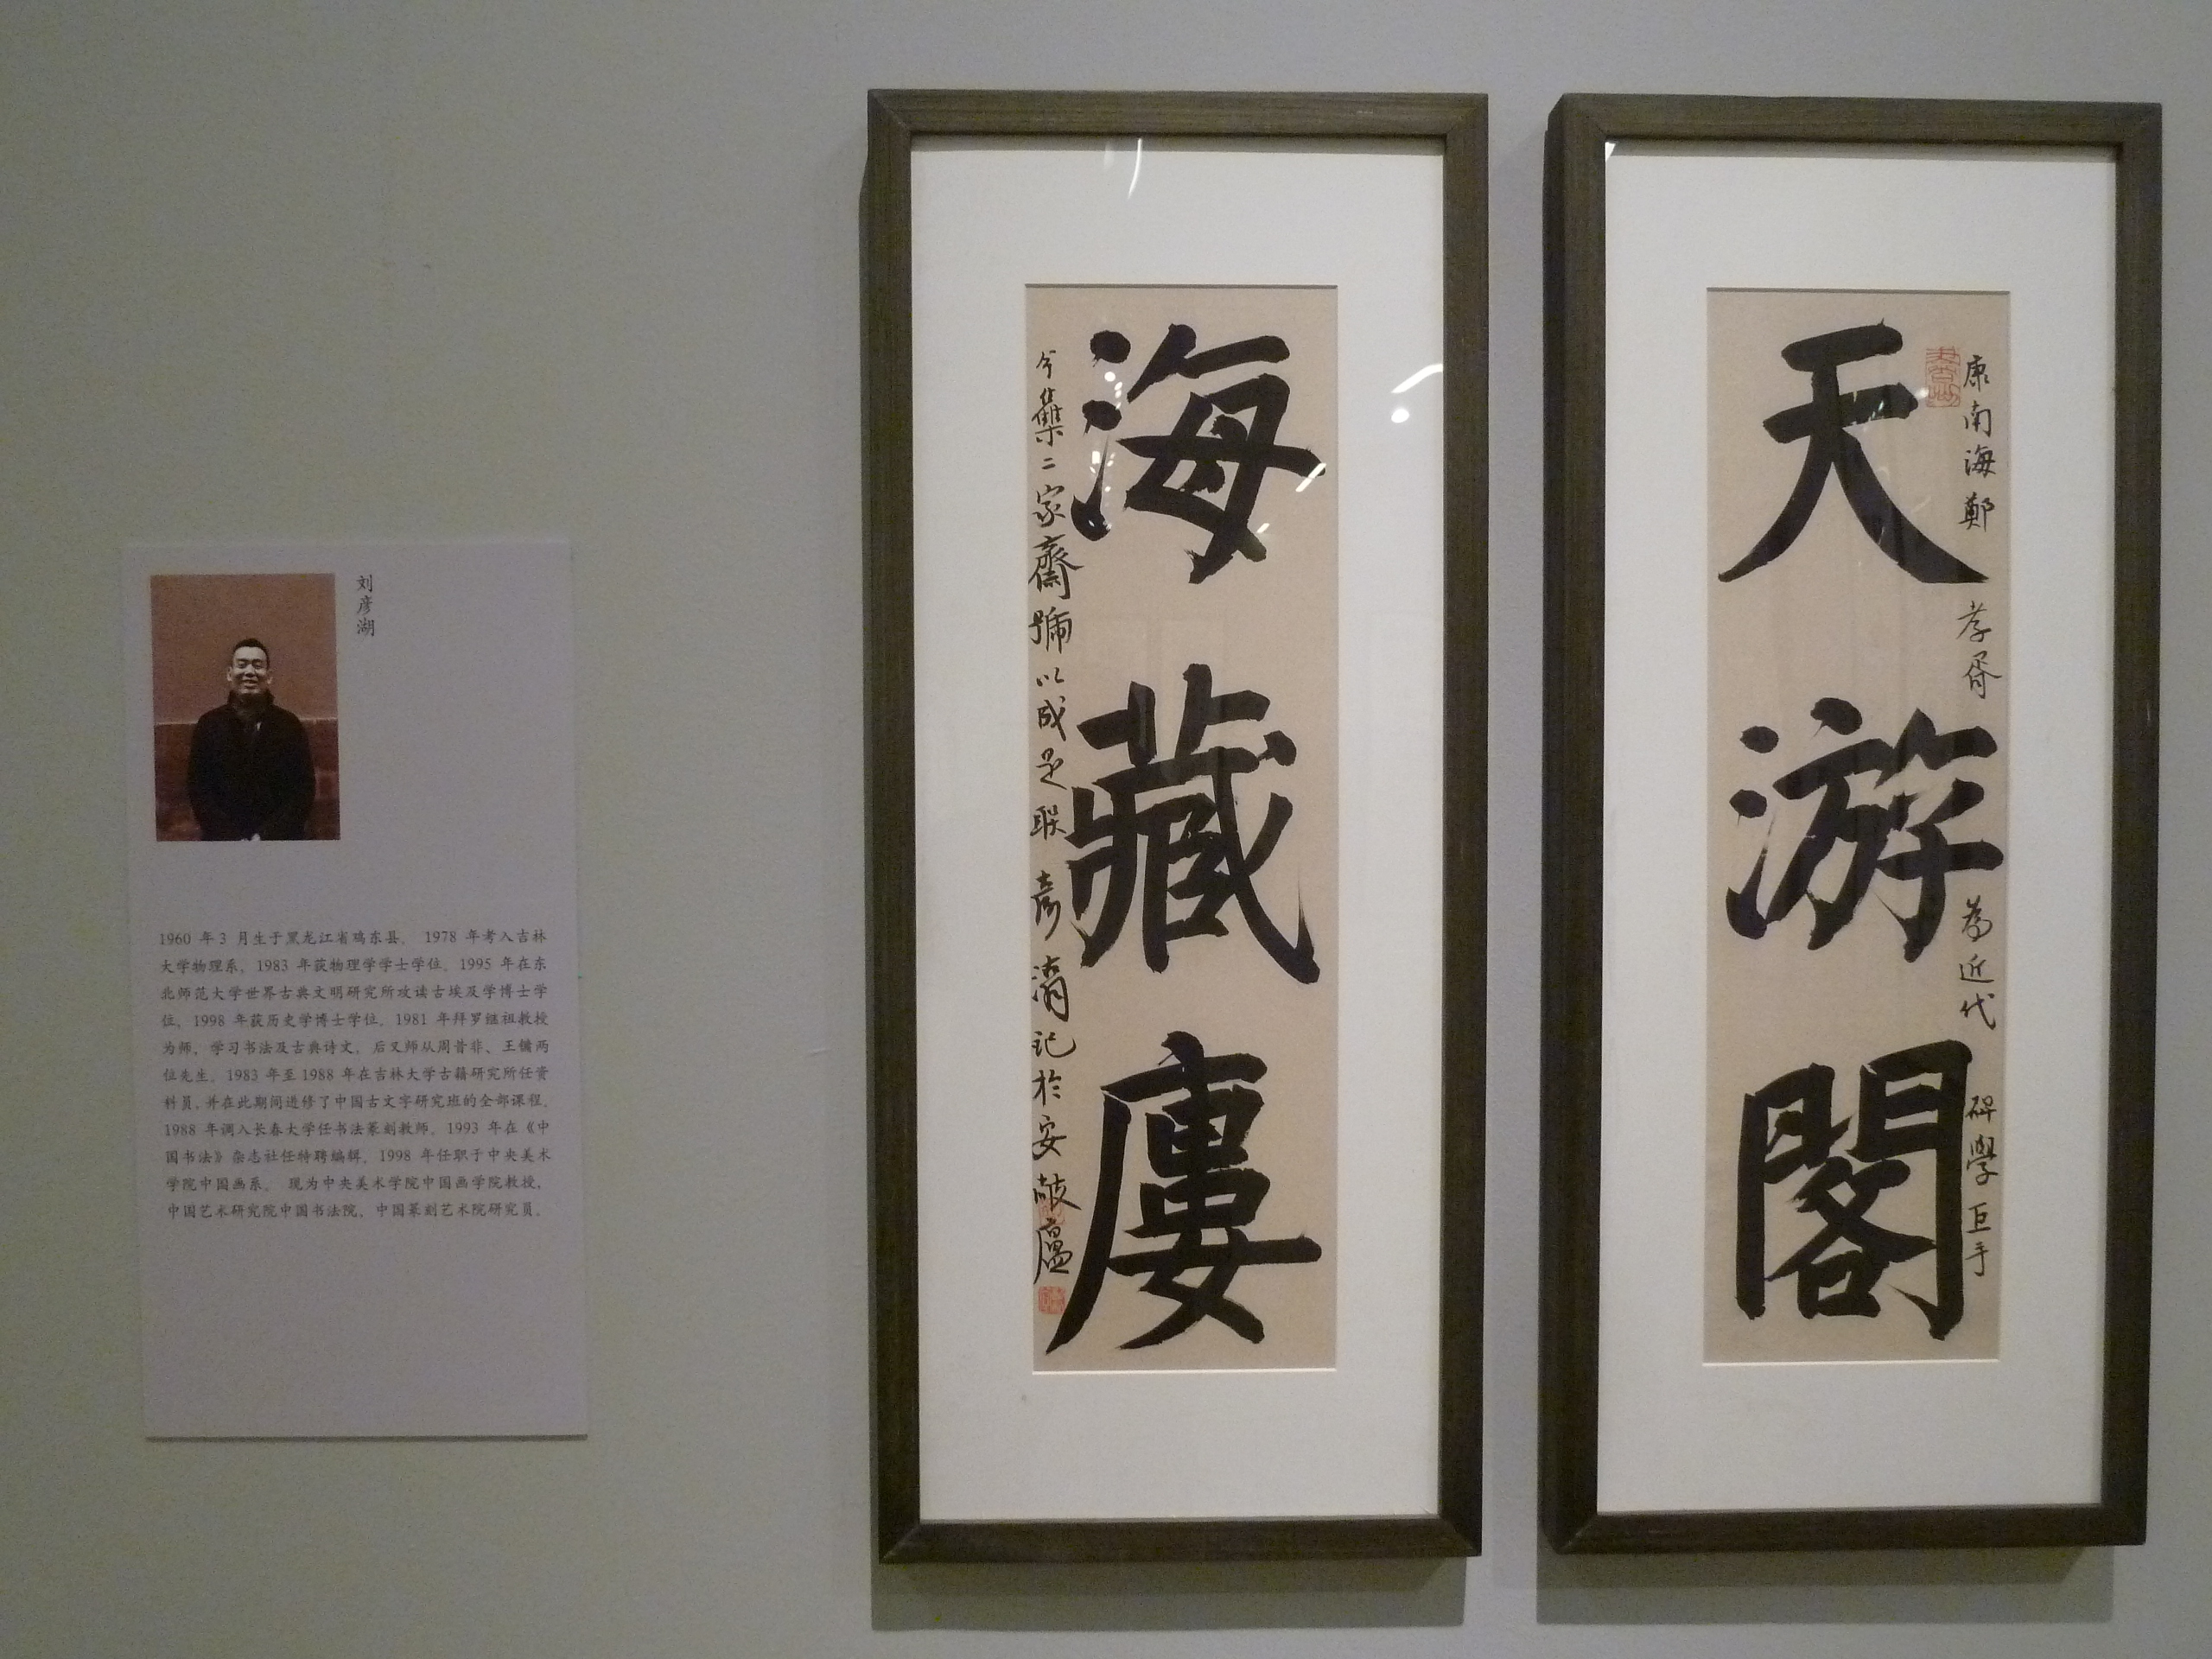 刘彦湖
1960 年 3 月生于黑龙江省鸡东县。 1978 年考入吉林
大学物理系。1983 年获物理学学士学位。1995 年在东
北师范大学世界古典文明研究所攻读古埃及学博士学
位，1998 年获历史学博士学位。1981 年拜罗继祖教授
为师，学习书法及古典诗文，后又师从周昔非、王镛两
位先生。1983 年至 1988 年在吉林大学古籍研究所任资
料员，并在此期间进修了中国古文字研究班的全部课程。
1988 年调入长春大学任书法篆刻教师。1993 年在《中
国书法》杂志社任特聘编辑。1998 年任职于中央美术
学院中国画系。 现为中央美术学院中国画学院教授，
中国艺术研究院中国书法院、中国篆刻艺术院研究员。
天游閣
康南海鄭孝胥為近代碑學巨手
海藏廔
今集二家齋號以成是联彦湖记於安敲廬